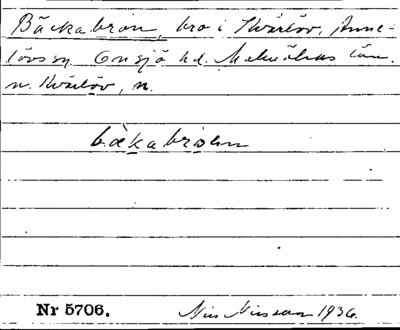 Bäckabron, bro i Kvärlöv, Anne-
lövs sn. Onsjö hd. Malmöhus län.
n. Kvärlöv, n.
Nr 5706. Nils Nilsson 1936.